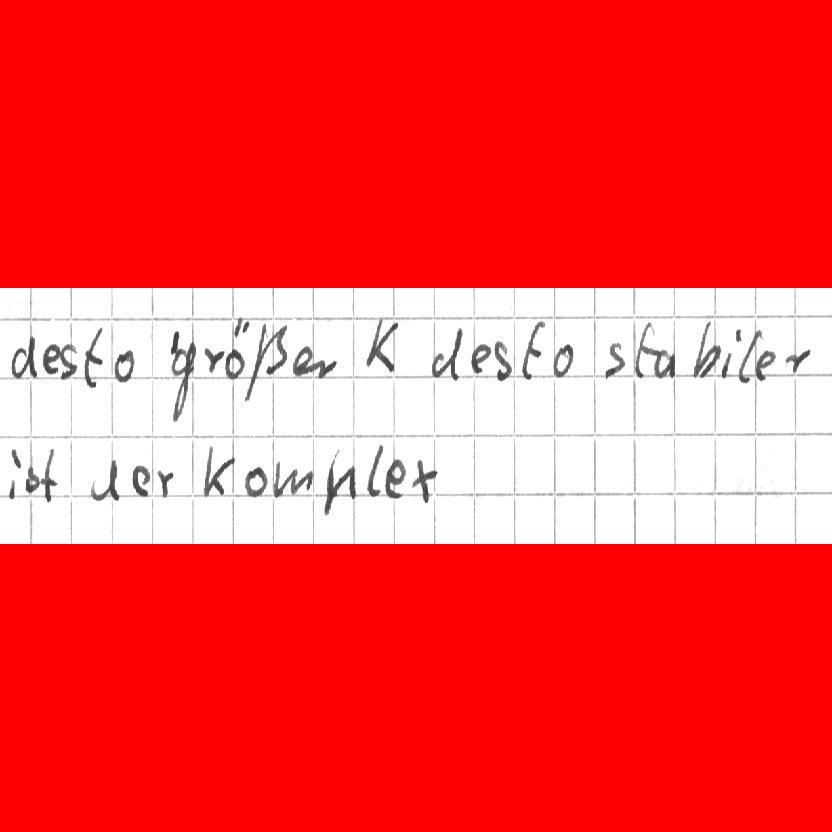 desto größer K desto stabiler
ist der Komplex